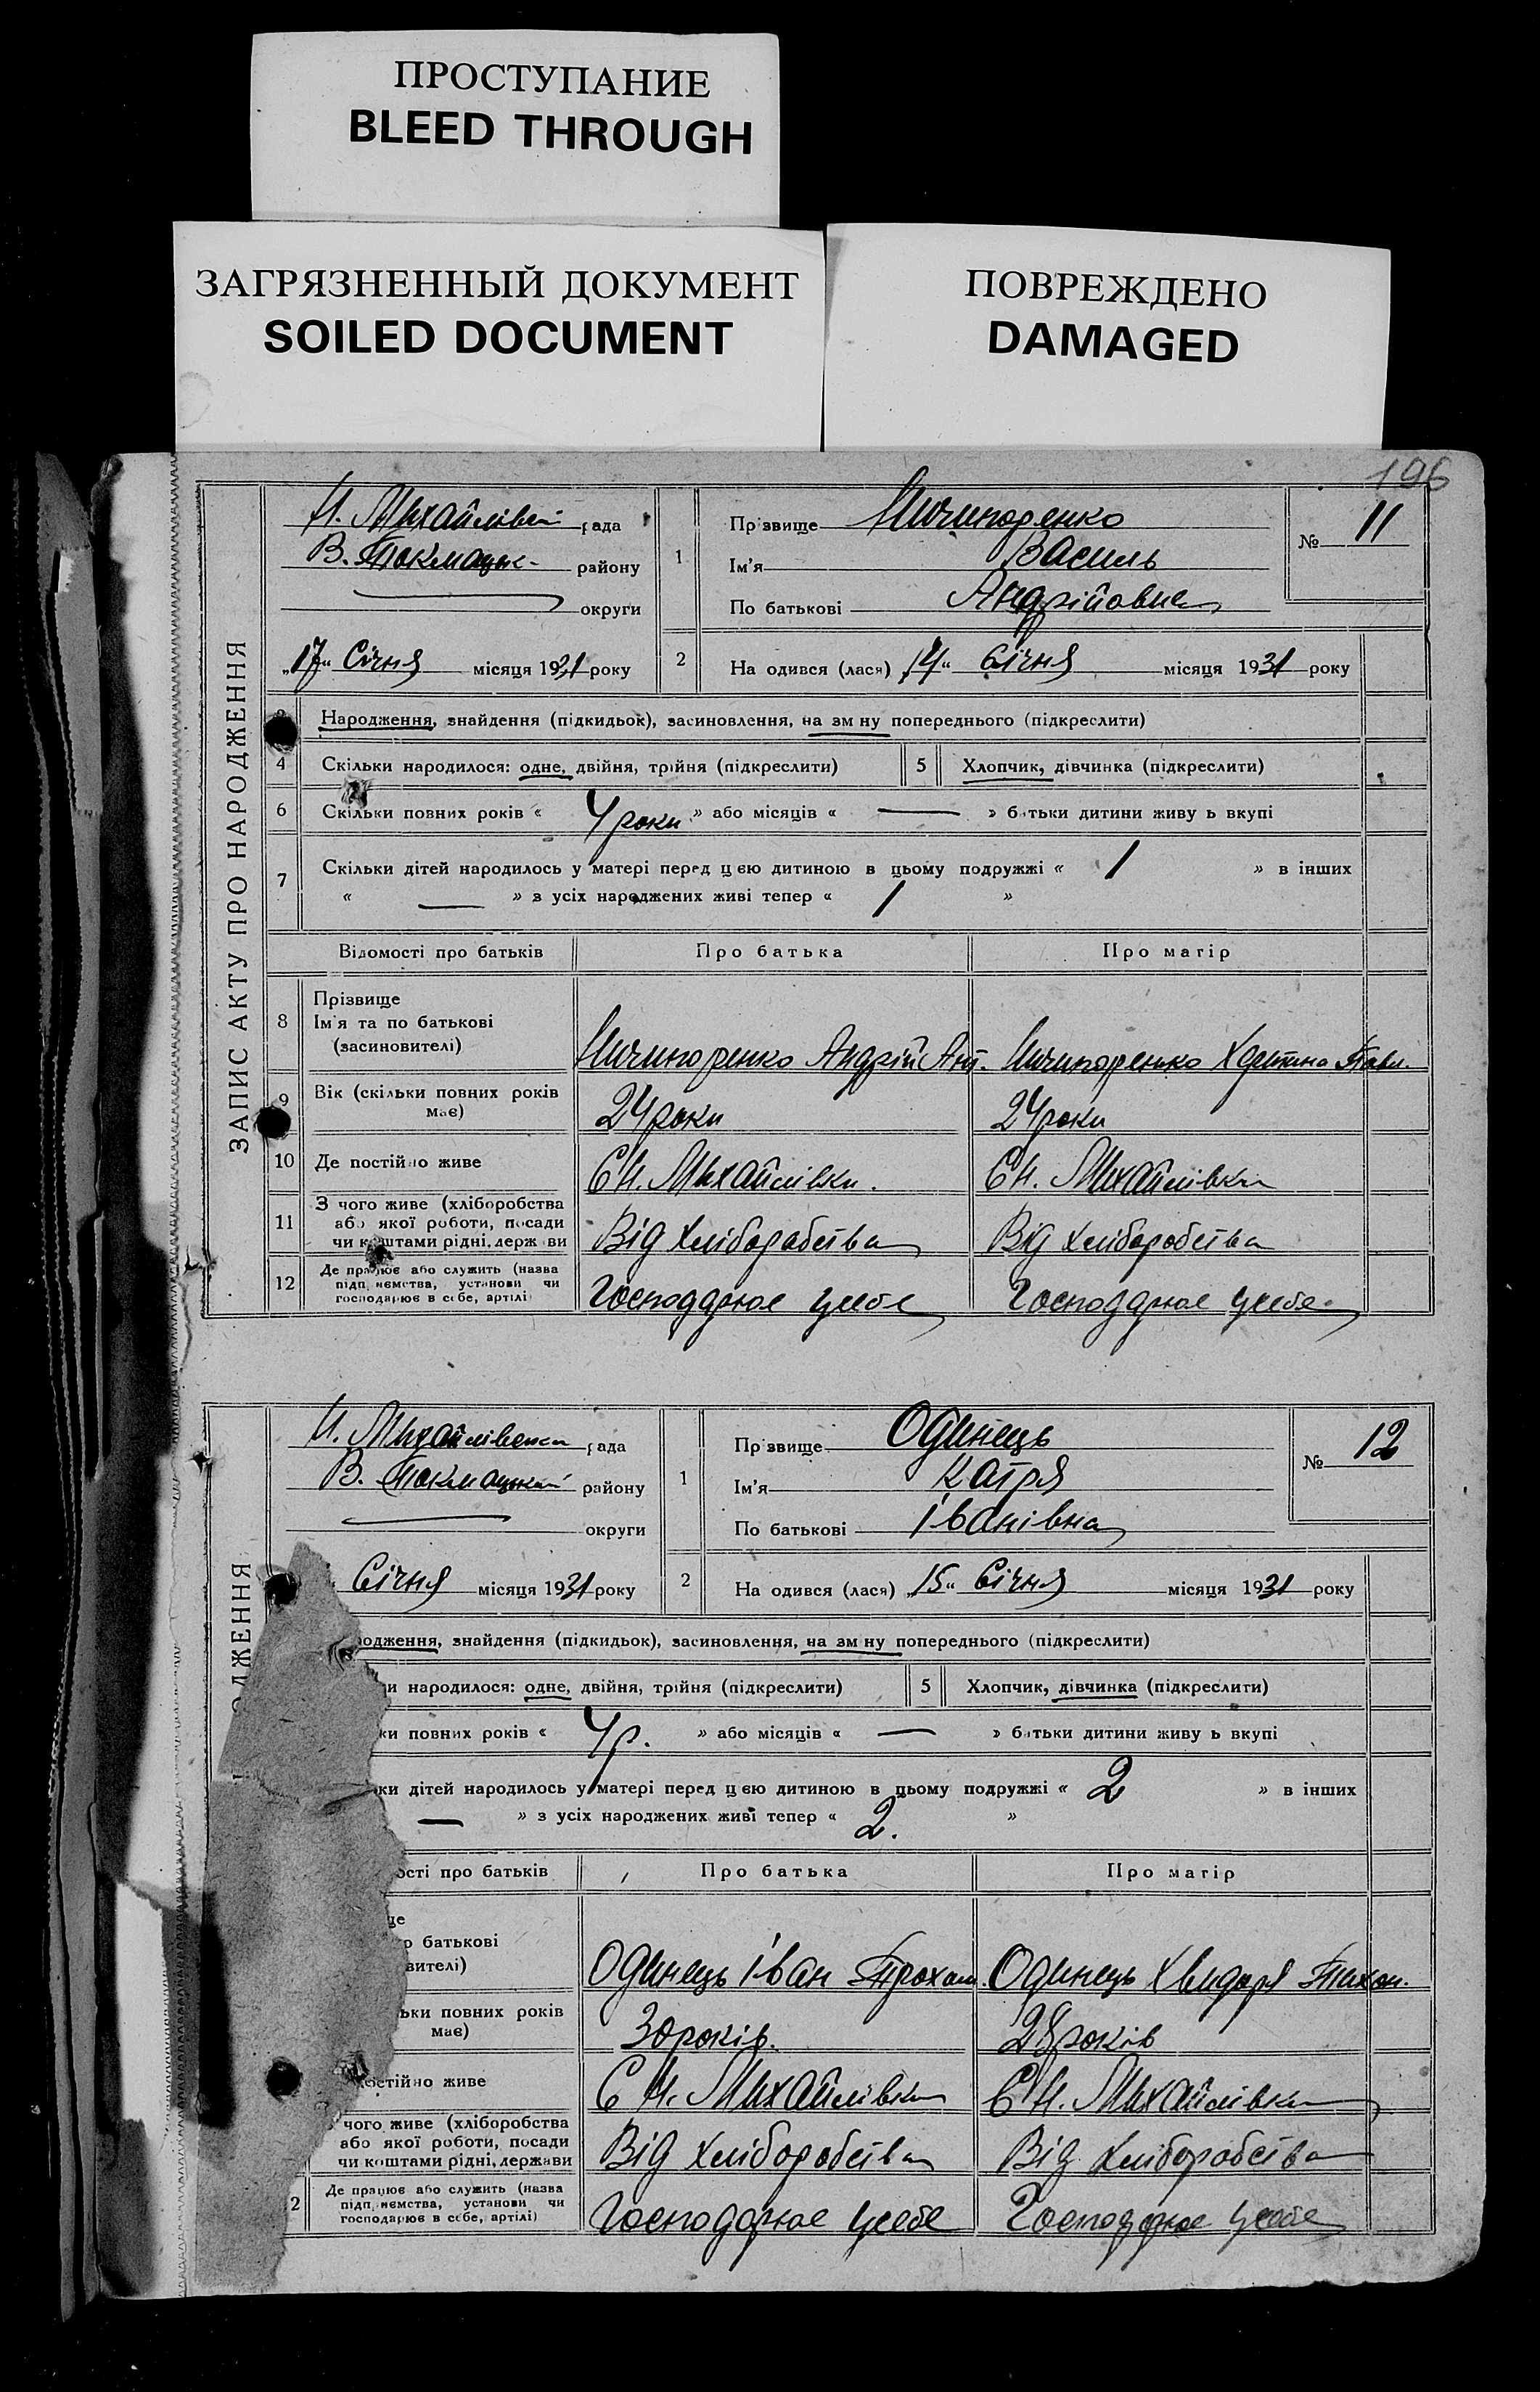 ПРОСТУПАНИЕ
BLEED THROUGH
ЗАГРЯЗНЕННЫЙ ДОКУМЕНТ
SOILED DOCUMENT
ПОВРЕЖДЕНО
DAMAGED
196
ЗАПИС АКТУ ПРО НАРОДЖЕННЯ
Н. Михайлівсь рада
В. Токмацьк- району
округи
„17“ Січня місяця 1931 року
1 Прізвище Ничипоренко
Ім'я Василь
По батькові Андрійович
№ 11
2 На одився (лася) „14“ Січня місяця 1931 року
Народження, знайдення (підкидьок), засиновлення, на зм ну попереднього (підкреслити)
4 Скільки народилося: одне, двійня, трійня (підкреслити) 5 Хлопчик, дівчинка (підкреслити)
6 Скільки повних років « 4 роки » або місяців « — » батьки дитини живу ь вкупі
7 Скільки дітей народилось у матері перед цією дитиною в цьому подружжі « 1 » в інших
« — » з усіх народжених живі тепер « 1 »
Відомості про батьків Про батька Про матір
8 Прізвище
Ім'я та по батькові
(засиновителі)
Ничипоренко Андрій Ант. Ничипоренко Христина Павл.
9 Вік (скільки повних років
має)
24 роки 24 роки
10 Де постійно живе С Н. Михайлівки. С Н. Михайлівки
11 З чого живе (хліборобства
або якої роботи, посади
чи коштами рідні, держ ви
Від хліборобства Від хліборобства
12 Де працює або служить (назва
підп иємства, установи чи
господарює в себе, артілі
Господарює усебе Господарює усебе
ОДЖЕННЯ
Н. Михайлівська рада
В. Токмацький району
округи
Січня місяця 1931 року
1 Пр звище Одинець
Ім'я Катря
По батькові Іванівна
№ 12
2 На одився (лася) „15“ Січня місяця 1931 року
одження, знайдення (підкидьок), засиновлення, на зм ну попереднього (підкреслити)
и народилося: одне, двійня, трійня (підкреслити) 5 Хлопчик, дівчинка (підкреслити)
ки повних років « 4 р. » або місяців « — » батьки дитини живу ь вкупі
ки дітей народилось у матері перед цією дитиною в цьому подружжі « 2 » в інших
— » з усіх народжених живі тепер « 2. »
ості про батьків Про батька Про матір
ще
о батькові
вителі)
Одинець Іван Трохим. Одинець Хвидоря Тихон.
ьки повних років
має)
30 років. 28 років
остійно живе С Н. Михайлівки С Н. Михайлівки
чого живе (хліборобства
або якої роботи, посади
чи коштами рідні, держави
Від хліборобства Від хліборобства
2 Де працює або служить (назва
підп иємства, установи чи
господарює в себе, артілі)
Господарює усебе Господарює усебе